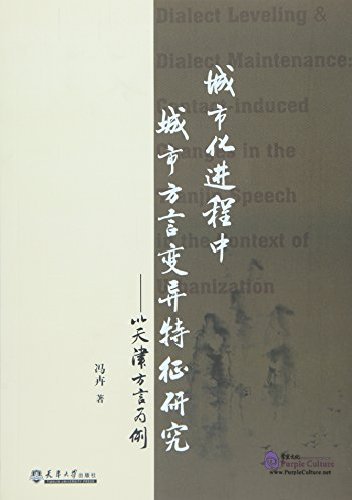 Dialect Leveling &
Dialect Maintenance:
Contact-induced
Changes in the
Tianjin Speech
in the Context of
Urbanization
城市化进程中
城市方言变异特征研究
——以天津方言为例
冯卉 著
天津大学出版社
TIANJIN UNIVERSITY PRESS
Purple Culture
www.PurpleCulture.net